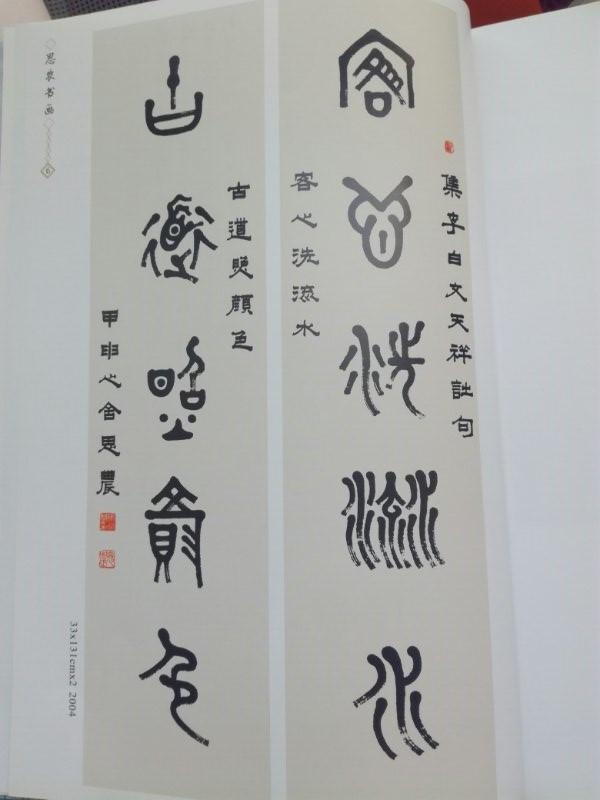 集李白文天祥詩句
客心洗流水
客心洗流水
古道照顏色
古道照顏色
甲申心舍思農
思农书画
6
33x131cmx2 2004